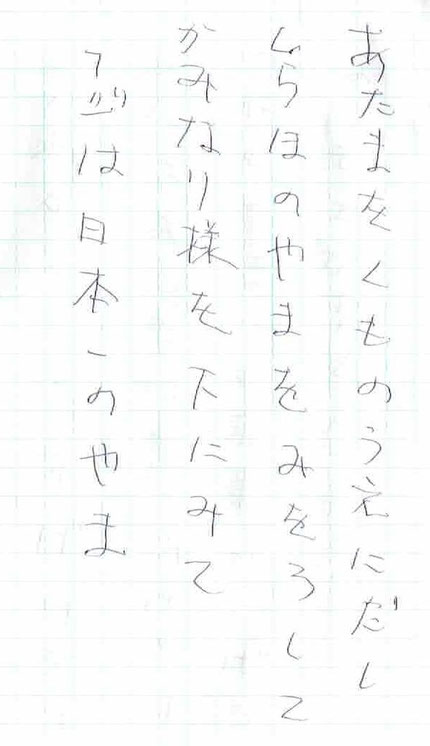 あたまをくものうえにだし
しらほのやまをみをろして
かみなり様を下にみて
フジは日本一のやま